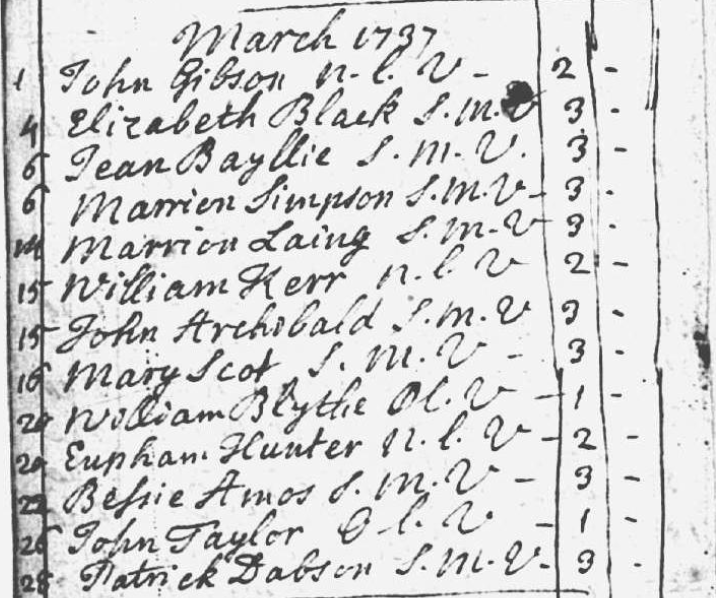 March 1737
1 John Gibson n. l. V - 2 -
4 Elizabeth Black S. M. V 3 -
6 Jean Bayllie S. M. V. 3 -
6 Marrion Simpson S. M. V - 3 -
14 Marrion Laing S. M. V 3 -
15 William Kerr n. l. V 2 -
15 John Archibald S. M. V 3 -
16 Mary Scot S. M. V - 3 -
20 William Blythe Ol. V - 1 -
20 Eupham Hunter n. l. V - 2 -
22 Bessie Amos S. M. V - 3 -
26 John Taylor O l. V - 1 -
28 Patrick Dabson S. M. V - 3 -